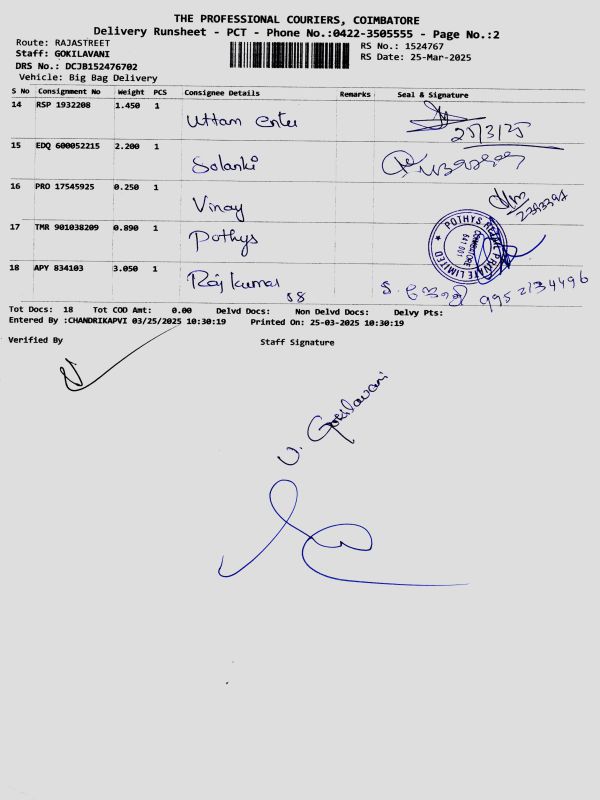 THE PROFESSIONAL COURIERS, COIMBATORE
Delivery Runsheet - PCT - Phone No.:0422-3505555 - Page No.:2
Route: RAJASTREET
Staff: GOKILAVANI
DRS No.: DCJB152476702
Vehicle: Big Bag Delivery
RS No.: 1524767
RS Date: 25-Mar-2025
S No Consignment No Weight PCS Consignee Details Remarks Seal & Signature
14 RSP 1932208 1.450 1 Uttam Enter 25/3/25
15 EDQ 600052215 2.200 1 Solanki
16 PRO 17545925 0.250 1 Vinay
17 TMR 901038209 0.890 1 Pothys POTHYS RETAIL PRIVATE LIMITED COIMBATORE 641 001
18 APY 834103 3.050 1 Raj kumar 58 9952134496
Tot Docs: 18 Tot COD Amt: 0.00 Delvd Docs: Non Delvd Docs: Delvy Pts:
Entered By :CHANDRIKAPVI 03/25/2025 10:30:19 Printed On: 25-03-2025 10:30:19
Verified By Staff Signature
V. Gokilavani